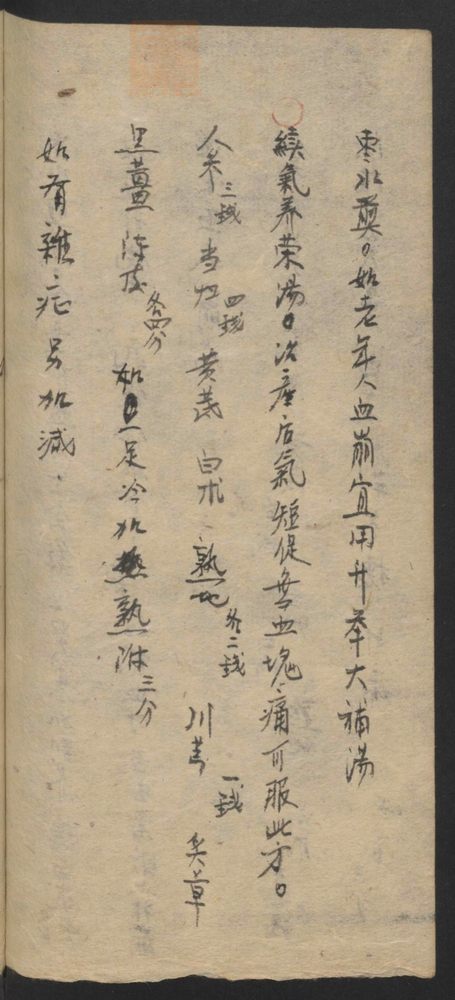 枣水煎。如老年人血崩宜用升举大補湯
續氣养荣湯。治産后氣短促无血塊痛可服此方。
人参三錢 当归四錢 黄芪 白术 熟地各二錢 川芎一錢 炙草
黑薑 陈皮各四分 如足冷加熟附三分
如有雜症另加減.